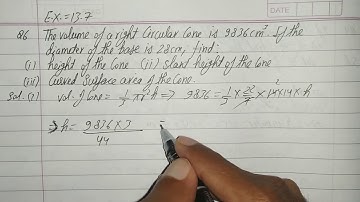 DATE
Ex:- 13.7
Q6. The volume of a right Circular Cone is 9836 cm³. If the
diameter of the base is 28cm, find:
(i) height of the Cone (ii) slant height of the Cone
(iii) Curved Surface area of the Cone.
Sol. (i) vol. of Cone = 1/3 πr²h => 9836 = 1/3 × 22/7 × 14 × 14 × h
2
=> h = 9836 × 3 / 44 =